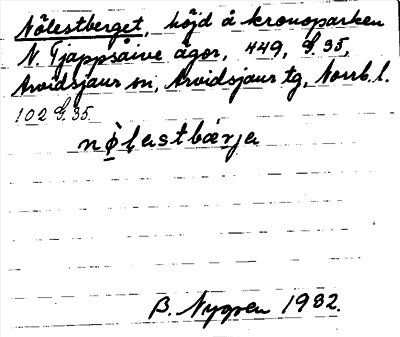 Nölestberget, höjd å kronoparken
N. Tjappsåive ägor, 449, G. 35,
Arvidsjaur sn, Arvidsjaur tg, Norrb. l.
102 G. 35.
nö̀lastbærja
B. Nygren 1932.